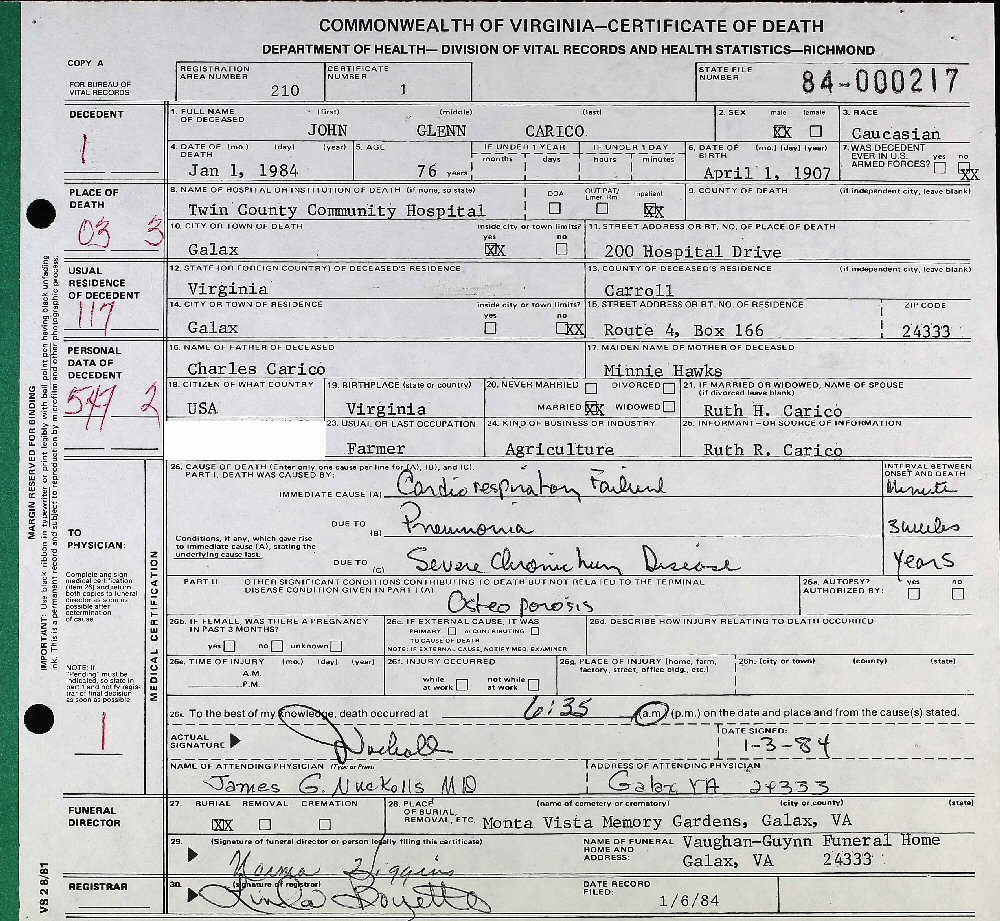 COMMONWEALTH OF VIRGINIA—CERTIFICATE OF DEATH
DEPARTMENT OF HEALTH— DIVISION OF VITAL RECORDS AND HEALTH STATISTICS—RICHMOND
COPY A
FOR BUREAU OF VITAL RECORDS
REGISTRATION AREA NUMBER 210
CERTIFICATE NUMBER 1
STATE FILE NUMBER 84-000217
DECEDENT
1
1. FULL NAME OF DECEASED (first) (middle) (last)
JOHN GLENN CARICO
2. SEX male female
XX
3. RACE
Caucasian
4. DATE OF DEATH (mo.) (day) (year)
Jan 1, 1984
5. AGE
76 years
IF UNDER 1 YEAR months days
IF UNDER 1 DAY hours minutes
6. DATE OF BIRTH (mo.) (day) (year)
April 1, 1907
7. WAS DECEDENT EVER IN U.S. ARMED FORCES? yes no
XX
PLACE OF DEATH
03 3
8. NAME OF HOSPITAL OR INSTITUTION OF DEATH (if none, so state)
Twin County Community Hospital
DOA OUT PAT/ Emer. Rm. Inpatient
XX
9. COUNTY OF DEATH (if independent city, leave blank)
10. CITY OR TOWN OF DEATH inside city or town limits? yes no
Galax XX
11. STREET ADDRESS OR RT. NO. OF PLACE OF DEATH
200 Hospital Drive
USUAL RESIDENCE OF DECEDENT
117
12. STATE (OR FOREIGN COUNTRY) OF DECEASED'S RESIDENCE
Virginia
13. COUNTY OF DECEASED'S RESIDENCE (if independent city, leave blank)
Carroll
14. CITY OR TOWN OF RESIDENCE inside city or town limits? yes no
Galax XX
15. STREET ADDRESS OR RT. NO. OF RESIDENCE ZIP CODE
Route 4, Box 166 24333
PERSONAL DATA OF DECEDENT
547 2
16. NAME OF FATHER OF DECEASED
Charles Carico
17. MAIDEN NAME OF MOTHER OF DECEASED
Minnie Hawks
18. CITIZEN OF WHAT COUNTRY
USA
19. BIRTHPLACE (state or country)
Virginia
20. NEVER MARRIED DIVORCED
MARRIED XX WIDOWED
21. IF MARRIED OR WIDOWED, NAME OF SPOUSE
(if divorced leave blank)
Ruth H. Carico
23. USUAL OR LAST OCCUPATION
Farmer
24. KIND OF BUSINESS OR INDUSTRY
Agriculture
25. INFORMANT—OR SOURCE OF INFORMATION
Ruth R. Carico
MARGIN RESERVED FOR BINDING
IMPORTANT: Use black ribbon in typewriter or print legibly with ball point pen having black unfading
ink. This is a permanent record and subject to reproduction by microfilm and other photographic process.
TO PHYSICIAN:
Complete and sign
medical certification
(item 26) and return
both copies to funeral
director as soon as
possible after
determination
of cause
NOTE: If
"Pending" must be
indicated, so state in
part I and notify regis-
trar of final decision
as soon as possible
1
MEDICAL CERTIFICATION
26. CAUSE OF DEATH (Enter only one cause per line for (A), (B), and (C).
PART I. DEATH WAS CAUSED BY:
INTERVAL BETWEEN ONSET AND DEATH
IMMEDIATE CAUSE (A) Cardio respiratory Failure Minute
DUE TO (B) Pneumonia 3 weeks
Conditions, if any, which gave rise
to immediate cause (A), stating the
underlying cause last.
DUE TO (C) Severe Chronic Lung Disease Years
PART II OTHER SIGNIFICANT CONDITIONS CONTRIBUTING TO DEATH BUT NOT RELATED TO THE TERMINAL
DISEASE CONDITION GIVEN IN PART I (A)
Osteoporosis
26a. AUTOPSY? AUTHORIZED BY: yes no
26b. IF FEMALE, WAS THERE A PREGNANCY
IN PAST 3 MONTHS?
yes no unknown
26c. IF EXTERNAL CAUSE, IT WAS
PRIMARY or CONTRIBUTING
TO CAUSE OF DEATH
NOTE: IF EXTERNAL CAUSE, NOTIFY MED. EXAMINER
26d. DESCRIBE HOW INJURY RELATING TO DEATH OCCURRED
26e. TIME OF INJURY (mo.) (day) (year)
A.M.
P.M.
26f. INJURY OCCURRED
while at work not while at work
26g. PLACE OF INJURY (home, farm,
factory, street, office bldg., etc.)
26h. (city or town) (county) (state)
26i. To the best of my knowledge, death occurred at 6:35 (a.m.) (p.m.) on the date and place and from the cause(s) stated.
ACTUAL SIGNATURE Nuckolls
DATE SIGNED: 1-3-84
NAME OF ATTENDING PHYSICIAN (Type or Print)
James G. Nuckolls MD
ADDRESS OF ATTENDING PHYSICIAN
Galax VA 24333
FUNERAL DIRECTOR
27. BURIAL REMOVAL CREMATION
XX
28. PLACE OF BURIAL, REMOVAL, ETC. (name of cemetery or crematory) (city or county) (state)
Monta Vista Memory Gardens, Galax, VA
29. (Signature of funeral director or person legally filing this certificate)
Higgins
NAME OF FUNERAL HOME AND ADDRESS:
Vaughan-Guynn Funeral Home
Galax, VA 24333
REGISTRAR
30. (signature of registrar)
Linda
DATE RECORD FILED:
1/6/84
VS 2 8/81